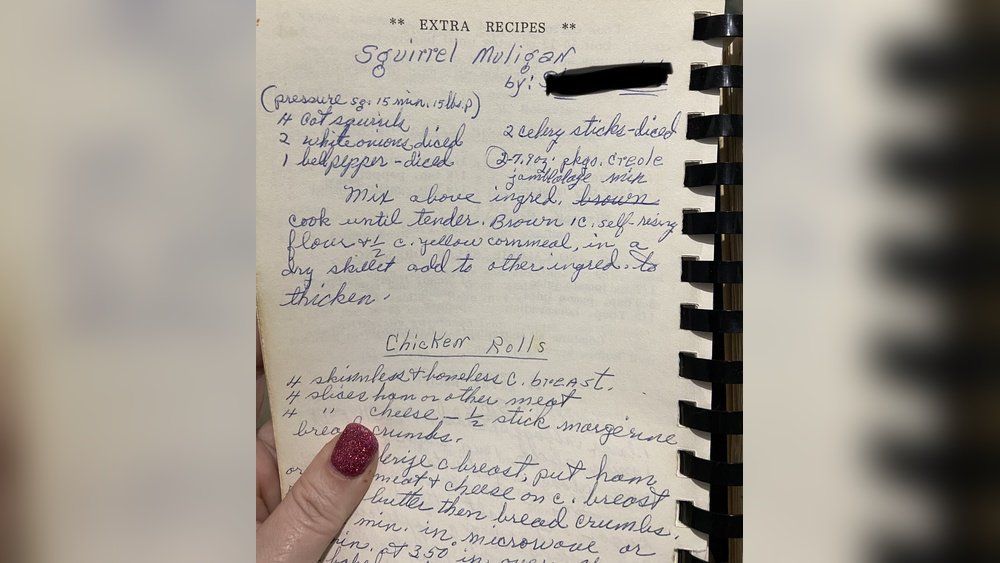 ** EXTRA RECIPES **
Squirrel Muligan
by:
(pressure sq. 15 min. 15 lbs. p)
4 cat squirrels
2 white onions diced
1 bellpepper - diced
2 celery sticks - diced
2 - 7.9 oz. pkgs. creole
jambalaya mix
Mix above ingred. brown
cook until tender. Brown 1 c. self-rising
flour + 1/2 c. yellow cornmeal, in a
dry skillet add to other ingred. to
thicken.
Chicken Rolls
4 skinnless + boneless c. breast.
4 slices ham or other meat
4 " cheese - 1/2 stick margerine
bread crumbs.
c. breast, put ham
or meat + cheese on c. breast
butter then bread crumbs.
min. in microwave or
min. at 350 in